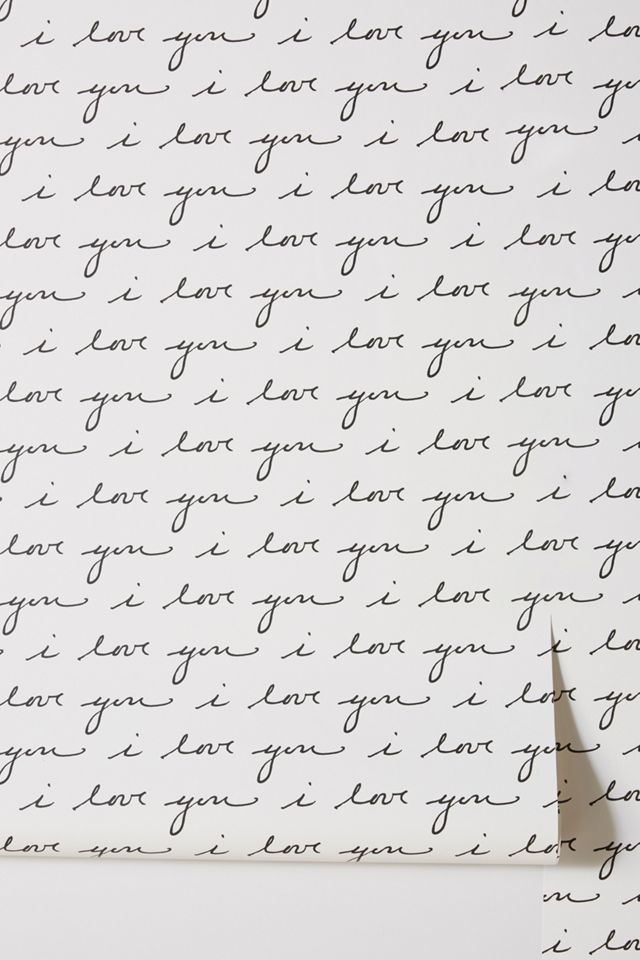 i love you i love you i lo
love you i love you i love yo
you i love you i love you i
i love you i love you i lo
love you i love you i love yo
you i love you i love you i
i love you i love you i lo
love you i love you i love yo
you i love you i love you i
i love you i love you i lo
love you i love you i love yo
you i love you i love you i
i love you i love you i lo
love you i love you i love yo
you i love you i love you i
i love you i love you i lo
love you i love you i love yo
ou i
i lo